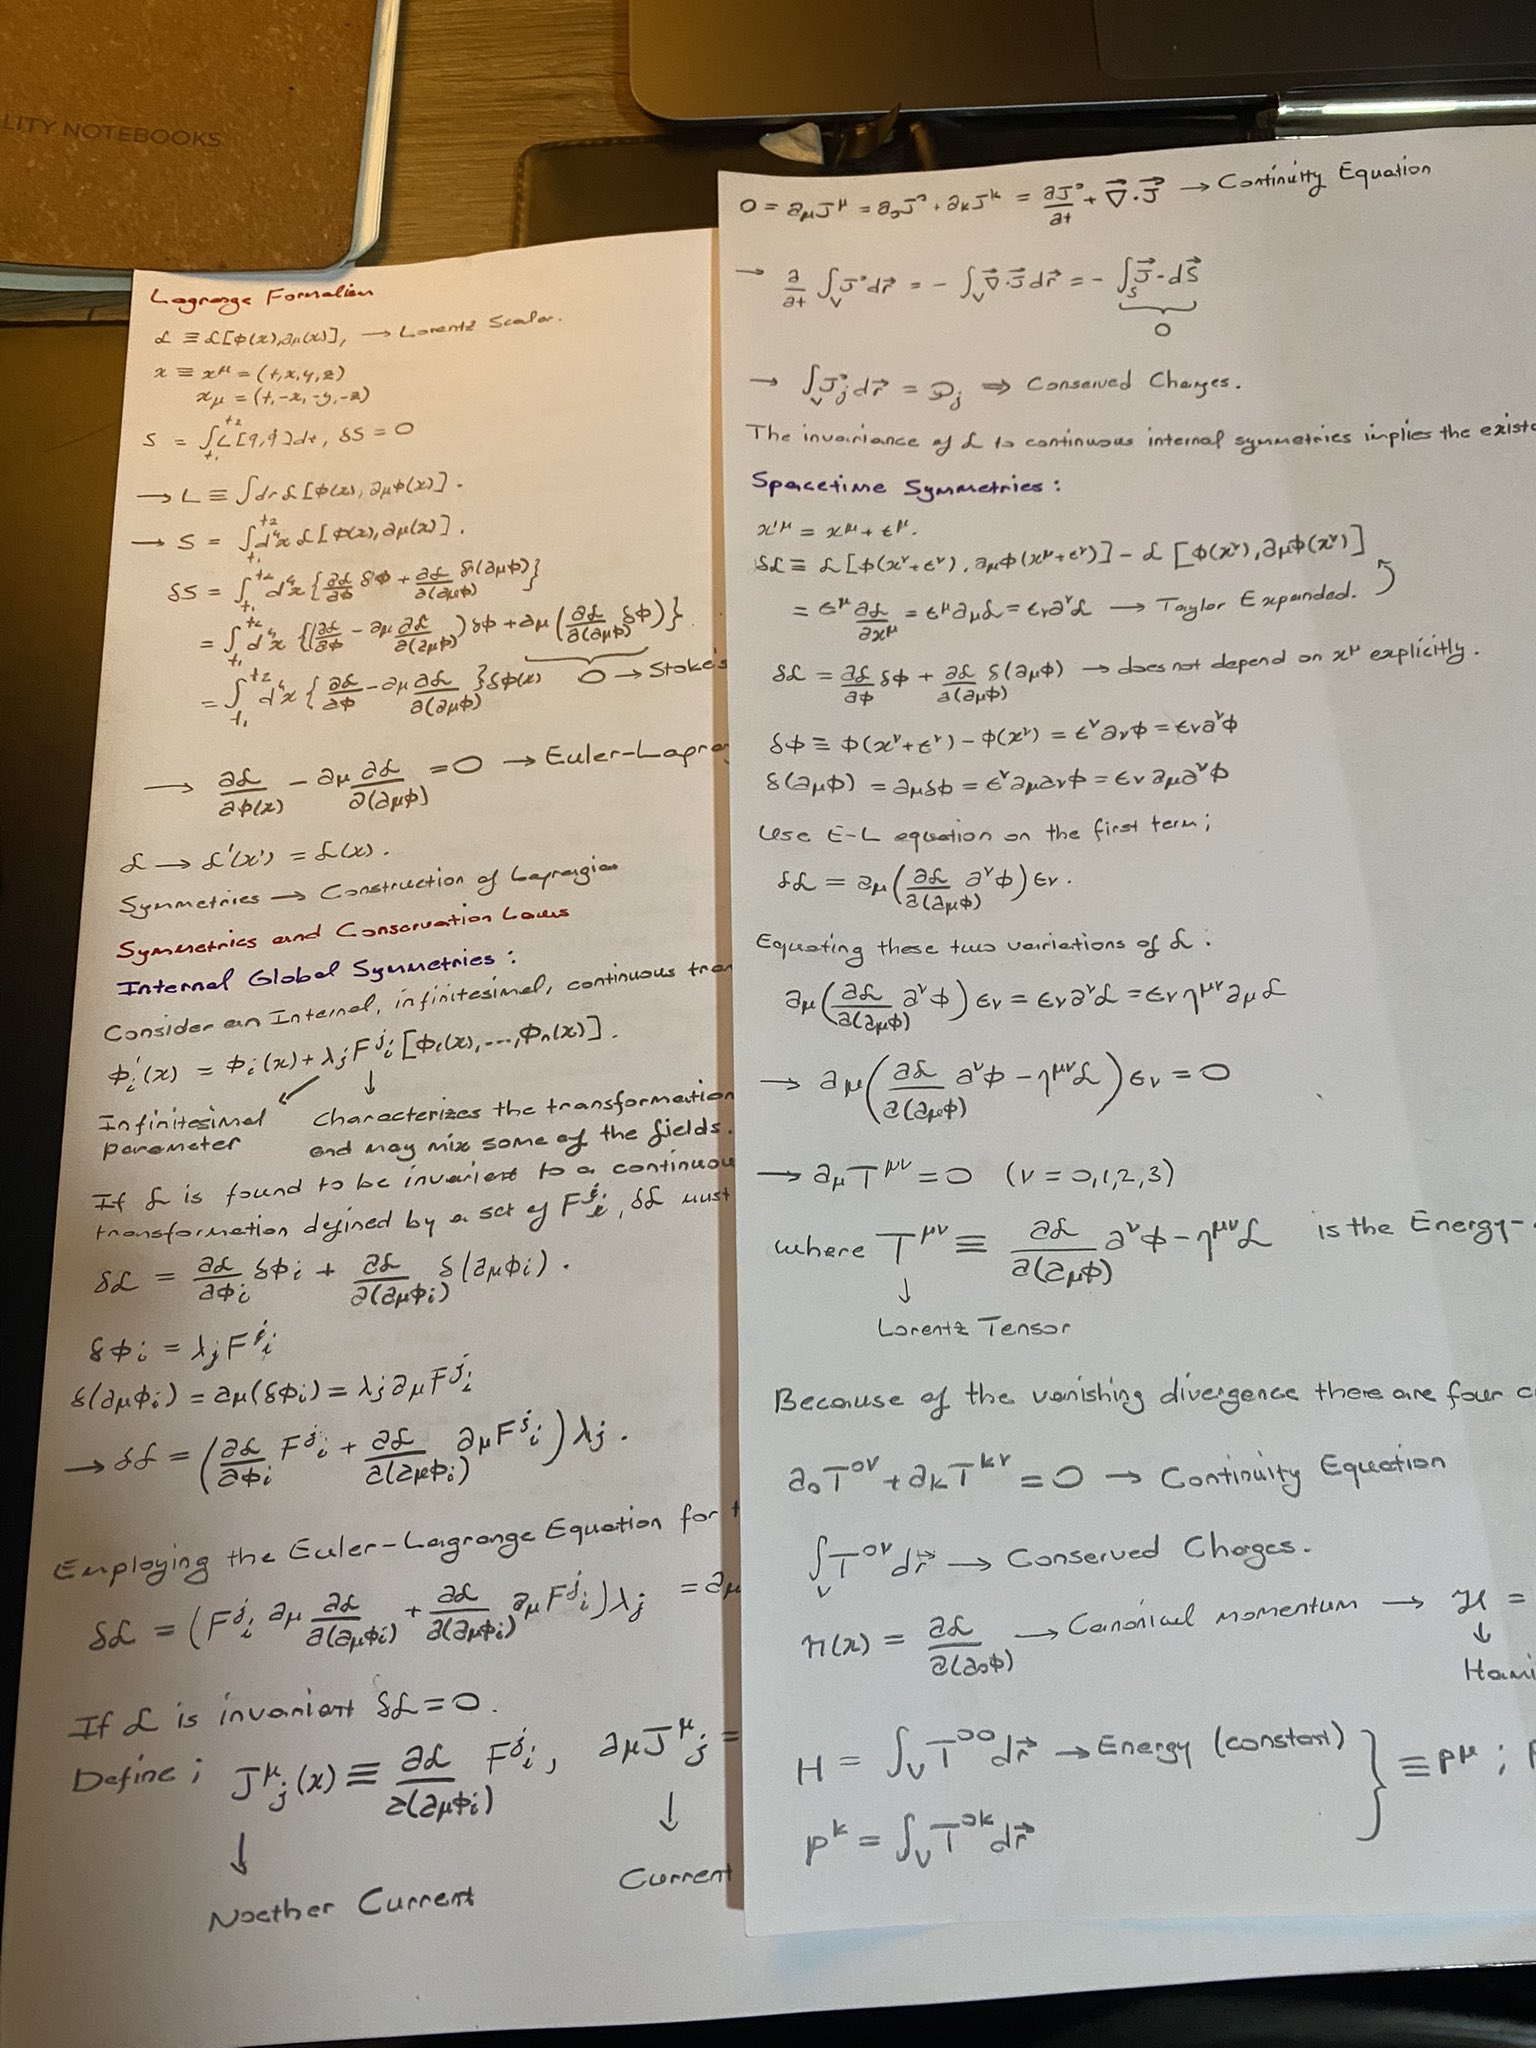 LITY NOTEBOOKS
Lagrange Formalism
ℒ ≡ ℒ[φ(x),∂μ(x)], → Lorentz Scalar.
x ≡ x^μ = (t,x,y,z)
x_μ = (t,-x,-y,-z)
S = ∫_{t₁}^{t₂} L[q,q̇]dt, δS = 0
→ L ≡ ∫dr ℒ[φ(x), ∂μφ(x)].
→ S = ∫_{t₁}^{t₂} d⁴x ℒ[φ(x), ∂μ(x)].
δS = ∫_{t₁}^{t₂} d⁴x {∂ℒ/∂φ δφ + ∂ℒ/∂(∂μφ) δ(∂μφ)}
= ∫_{t₁}^{t₂} d⁴x {(∂ℒ/∂φ - ∂μ ∂ℒ/∂(∂μφ)) δφ + ∂μ(∂ℒ/∂(∂μφ) δφ)}.
= ∫_{t₁}^{t₂} d⁴x {∂ℒ/∂φ - ∂μ ∂ℒ/∂(∂μφ)}δφ(x) 0 → Stoke's
→ ∂ℒ/∂φ(x) - ∂μ ∂ℒ/∂(∂μφ) = 0 → Euler-Lagra
ℒ → ℒ'(x') = ℒ(x).
Symmetries → Construction of Lagrangian
Symmetries and Conservation Laws
Internal Global Symmetries:
Consider an Internal, infinitesimal, continuous tran
φ'_i(x) = φ_i(x) + λ_j F^j_i [φ₁(x), ..., φn(x)].
Infinitesimal parameter
Characterizes the transformation
and may mix some of the fields.
If ℒ is found to be invariant to a continuou
transformation defined by a set of F^j_i, δℒ must
δℒ = ∂ℒ/∂φ_i δφ_i + ∂ℒ/∂(∂μφ_i) δ(∂μφ_i).
δφ_i = λ_j F^j_i
δ(∂μφ_i) = ∂μ(δφ_i) = λ_j ∂μF^j_i
→ δℒ = (∂ℒ/∂φ_i F^j_i + ∂ℒ/∂(∂μφ_i) ∂μF^j_i) λ_j.
Employing the Euler-Lagrange Equation for
δℒ = (F^j_i ∂μ ∂ℒ/∂(∂μφ_i) + ∂ℒ/∂(∂μφ_i) ∂μF^j_i) λ_j = ∂μ
If ℒ is invariant δℒ = 0.
Define; J^μ_j(x) ≡ ∂ℒ/∂(∂μφ_i) F^j_i, ∂μJ^μ_j =
Noether Current
Current
0 = ∂μJ^μ = ∂₀J⁰ + ∂kJ^k = ∂J⁰/∂t + ∇⃗·J⃗ → Continuity Equation
→ ∂/∂t ∫_V J⁰dr⃗ = - ∫_V ∇⃗·J⃗ dr⃗ = - ∫_S J⃗·dS⃗
0
→ ∫_V J⁰_j dr⃗ = Q_j ⇒ Conserved Charges.
The invariance of ℒ to continuous internal symmetries implies the existe
Spacetime Symmetries:
x'^μ = x^μ + ε^μ.
δℒ ≡ ℒ[φ(x^ν+ε^ν), ∂μφ(x^μ+ε^ν)] - ℒ[φ(x^ν), ∂μφ(x^ν)]
= ε^μ ∂ℒ/∂x^μ = ε^μ∂μℒ = ε_ν∂^νℒ → Taylor Expanded.
δℒ = ∂ℒ/∂φ δφ + ∂ℒ/∂(∂μφ) δ(∂μφ) → does not depend on x^μ explicitly.
δφ ≡ φ(x^ν+ε^ν) - φ(x^ν) = ε^ν∂_νφ = ε_ν∂^νφ
δ(∂μφ) = ∂μδφ = ε^ν∂μ∂_νφ = ε_ν∂μ∂^νφ
Use E-L equation on the first term;
δℒ = ∂μ(∂ℒ/∂(∂μφ) ∂^νφ)ε_ν.
Equating these two variations of ℒ:
∂μ(∂ℒ/∂(∂μφ) ∂^νφ)ε_ν = ε_ν∂^νℒ = ε_νη^{μν}∂μℒ
→ ∂μ(∂ℒ/∂(∂μφ) ∂^νφ - η^{μν}ℒ)ε_ν = 0
→ ∂μT^{μν} = 0 (ν = 0,1,2,3)
where T^{μν} ≡ ∂ℒ/∂(∂μφ) ∂^νφ - η^{μν}ℒ is the Energy-
Lorentz Tensor
Because of the vanishing divergence there are four c
∂₀T^{0ν} + ∂kT^{kν} = 0 → Continuity Equation
∫_V T^{0ν}dr⃗ → Conserved Charges.
π(x) = ∂ℒ/∂(∂₀φ) → Canonical momentum → ℋ =
Hami
H = ∫_V T^{00}dr⃗ → Energy (constant) } ≡ P^μ ;
P^k = ∫_V T^{0k}dr⃗